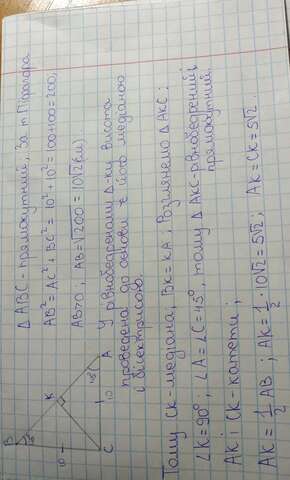 Δ ABC - прямокутний, За т Піфагора
AB² = AC² + BC² = 10² + 10² = 100+100=200,
AB>0, AB=√200 = 10√2 (см).
У рівнобедреному Δ-ку висота
проведена до основи є його медіаною
і бісектрисою.
B
K
A
C
10
10
45°
Тому CK-медіана, BK=KA, Розглянемо Δ AKC:
∠K=90°, ∠A=∠C=45°, тому Δ AKC-рівнобедрений і
прямокутний.
AK і CK-катети;
AK = 1/2 AB ; AK = 1/2 · 10√2 = 5√2 ; AK = CK = 5√2.